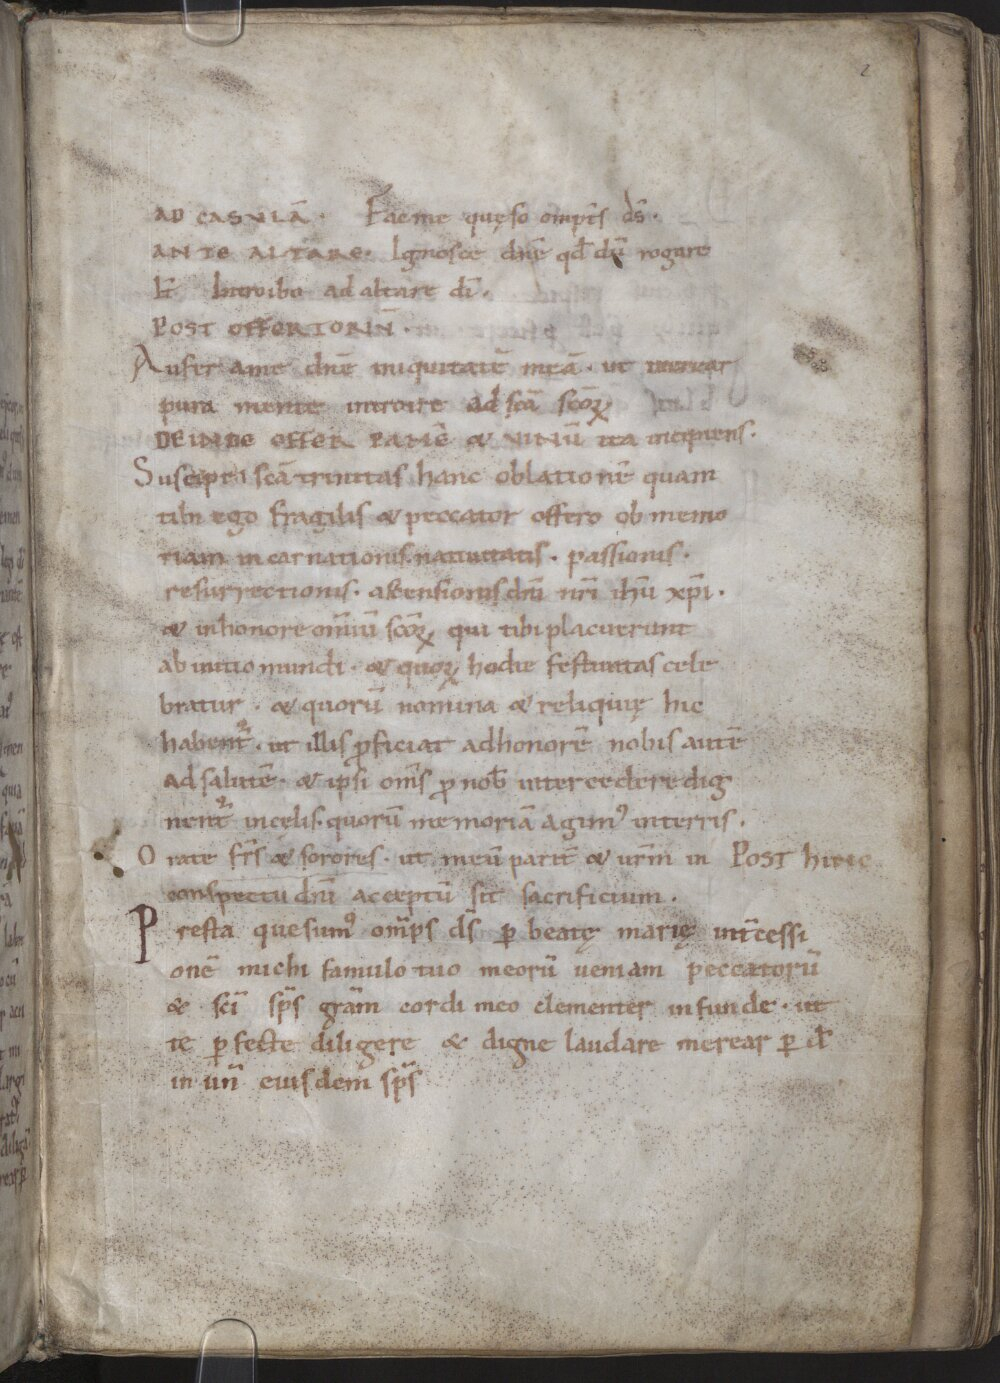 2
AD CASULĀ. Fac me quęso omp̄s d̄s.
ANTE ALTARE. Ignosce dn̄e qd̄ dū rogare
Introibo ad altare dī.
POST OFFERTORIŪ.
Aufer a me dn̄e iniquitatē meā. ut merear
pura mente introire ad sc̄a sc̄oꝝ
DEINDE OFFER PANĒ & UINŪ ita incipiens.
Suscipe sc̄a trinitas hanc oblationē quam
tibi ego fragilis & peccator offero ob memo
riam incarnationis. natiuitatis. passionis.
resurrectionis. ascensionis dn̄i nr̄i ihū xp̄i.
& in honore omniū sc̄oꝝ qui tibi placuerunt
ab initio mundi. & quoꝝ hodie festiuitas cele
bratur. & quorū nomina & reliquię hic
habent᷑. ut illis ꝓficiat ad honorē nobis autē
ad salutē. & ipsi om̄s ꝓ nob̄ intercedere dig
nent᷑ in celis. quorū memoriā agimꝰ in terris.
Orate fr̄s & sorores. ut meū parit̄ & ur̄m in POST hinc
conspectu dn̄i acceptū sit sacrificium.
Presta quesumꝰ omp̄s d̄s ꝑ beatę marię int̄cessi
onē michi famulo tuo meorū ueniam peccatorū
& sc̄i sp̄s grām cordi meo clementer infunde. ut
te ꝑfecte diligere & digne laudare merear ꝑ d̄
in un̄ eiusdem sp̄s